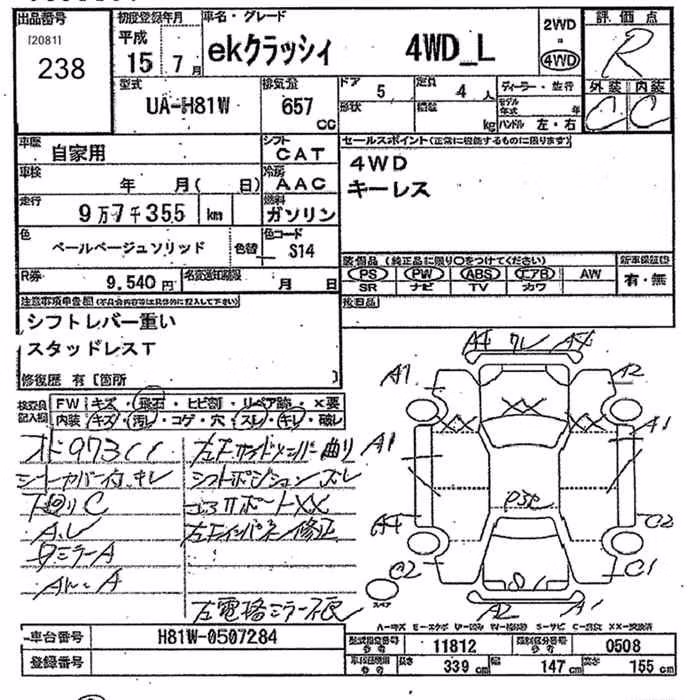 出品番号
[20811]
238
初度登録年月
平成
15 7月
車名・グレード
ekクラッシィ 4WD_L
2WD
4WD
評価点
R
外装 内装
C C
型式
UA-H81W
排気量
657
CC
ドア
5
定員
4人
形状
積載
kg
ディーラー・並行
モデル年式 年
ハンドル 左・右
車歴
自家用
シフト
CAT
車検
年 月( 日)
冷房
AAC
走行
9万7千355 km
燃料
ガソリン
色
ペールベージュソリッド
色替
色コード
S14
R券
9,540円
名変通知期限
月 日
セールスポイント(正常に機能するものに限ります)
4WD
キーレス
装備品(純正品に限り○をつけてください)
PS PW ABS エアB AW
SR ナビ TV カワ
新車保証書
有・無
注意事項申告欄
シフトレバー重い
スタッドレスT
修復歴 有〔箇所 〕
検査員記入欄
FW キズ・飛石・ヒビ割・リペア跡・X要
内装 キズ・汚レ・コゲ・穴・スレ・キレ・破レ
オド97311
シートカバー付、キレ
下回りC
A.L
左Fサイドメンバー曲り
シフトポジションズレ
左Fインパネ修正
左電格ミラー不良
A4 ワレ A4
A1 A2
XX
XX XX
A1 A1
A4 C2
C2 C1
A2 A1
スペア
車台番号
H81W-0507284
登録番号
型式指定番号
参考
11812
類別区分番号
参考
0508
長さ
339cm
幅
147cm
高さ
155cm